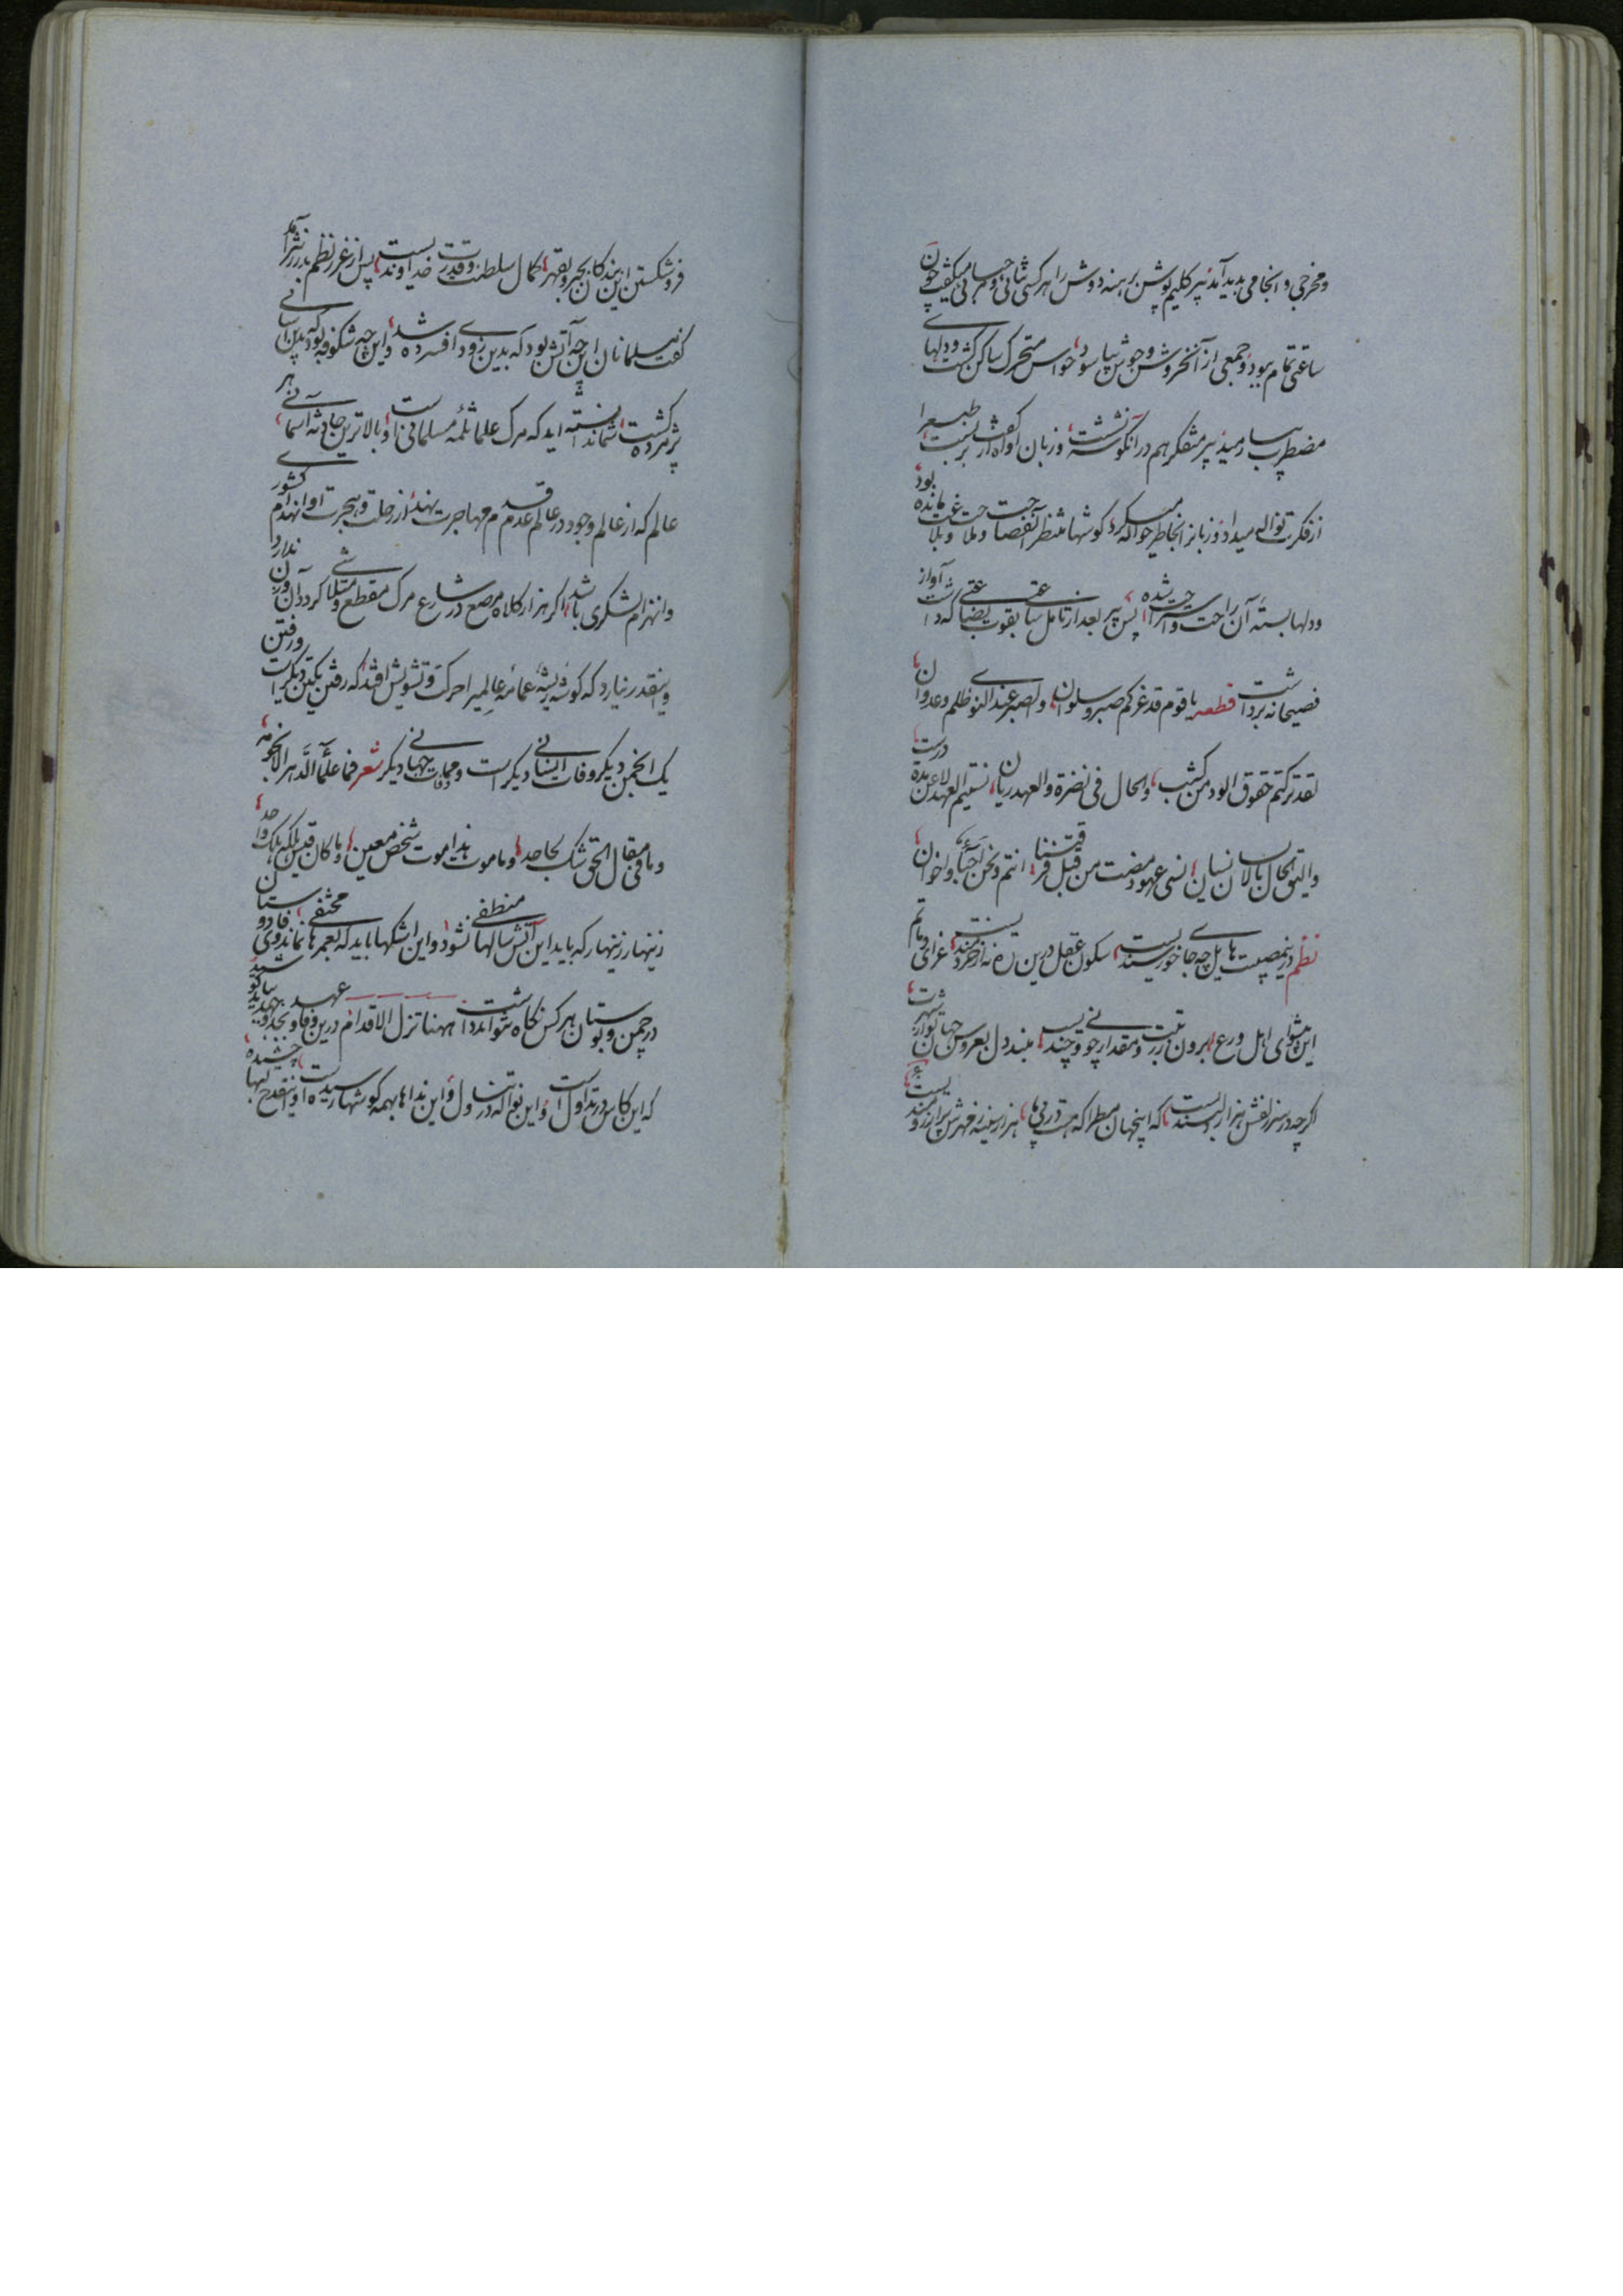 و مخرجی و انجامی پدید آمد پیر کلیم پوش برهنه دوش را هر کسی ثنائی و مرحبائی میگفت چون
ساعتی تمام ببود و جمعی از آنخروش و جوش بیاسود، حواس متحرک ساکن گشت و دلهای
مضطرب بیارمید پیر متفکر هم در آنگوشه نشست، و زبان از کفت بربست، طبع را
از فکرت نواله میداد و زبانرا بخاطر حواله میکرد، گوشها منتظر آن فصاحت و ملاحت مانده بود
و دلها بسته آن راحت و استراحت شده، پس پیر بعد از تأمل ساعتی بقوت بضاعتی که داشت آواز
فصیحانه برداشت قطعه یا قوم قد غرکم صبر و سلوان، والصبر عندی النوی ظلم و عدوان،
لقد ترکتم حقوق الود من کثب، والحال فی نضرة والعهد ریان، نسیتم العهد لا عن مدة درست،
والیق الحال بالانسان نسیان، انسی عهود مضت من قبل فرقتنا، انتم و نحن احباء و اخوان،
نظم درین مصیبت هایل چه جای خورسندیست، سکون عقل درین ره نه از خردمندیست، عزای و ماتم
این پیشوای اهل ورع، برون ز رتبت و مقدار چون و چندیست، مبند دل بعروس جهان
اگر چه در سر زلفش هزار دلبندیست، که اینجهان مطرا که هست در پی ما، هزار سینه ز مهرش پر آرزومندیست،
فروشکستن این بندگان بجبر و بقهر، کمال سلطنت و قدرت خداوندیست، پس از غرر نظم بدرر نثر آمد
گفت مسلمانان این چه آتش بود که بدین زودی افسرده شد، و این چه شکوفه بود که بدین آسانی
پژمرده گشت، شما ندانسته اید که مرگ علما ثلمه مسلمانی است و بالاترین حادثه آسمانی، هر
عالم که از عالم وجود در عالم عدم قدم مهاجرت نهد، از رحلت و هجرت او انهدام کشوری
و انهزام لشکری باشد، اگر هزار کلاه مرصع در شارع مرگ مقطع و متلاشی گردد آن وزن ندارد
و اینقدر نیارد که گوشه ریشه عمامه عالمی را حرکت و تشویش افتد که رفتن یکتن دیگر است و رفتن
یک انجمن دیگر وفات انسانی دیگر است و ممات جهانی دیگر شعر فما علم الدهر الا نجومه،
و ما فی مقال الحق شک لجاحد، و ما موت هذا موت شخص معین، و ما کان قیس هلکه هلک واحد،
زینهار زینهار که باید این آتش سالها منطفی نشود و این اشکها باید که بعمرها نماند مختفی، فا دوستان
در چمن و بوستان هر کس نگاه تواند داشت ههنا تزل الاقدام درین وفا و عهد
که این کاس در تداول است، و این نواله در تناول، و این نداها بهمه گوشها رسیده است، و اینقدح لبها چشیده،